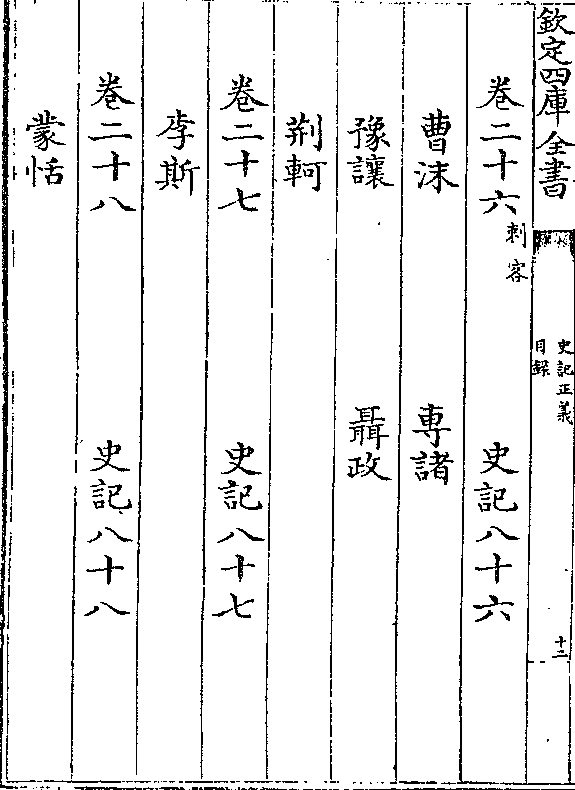 欽定四庫全書
史記正義
目録
十二
卷二十六刺客 史記八十六
曹沫 專諸
豫讓 聶政
荆軻
卷二十七 史記八十七
李斯
卷二十八 史記八十八
蒙恬